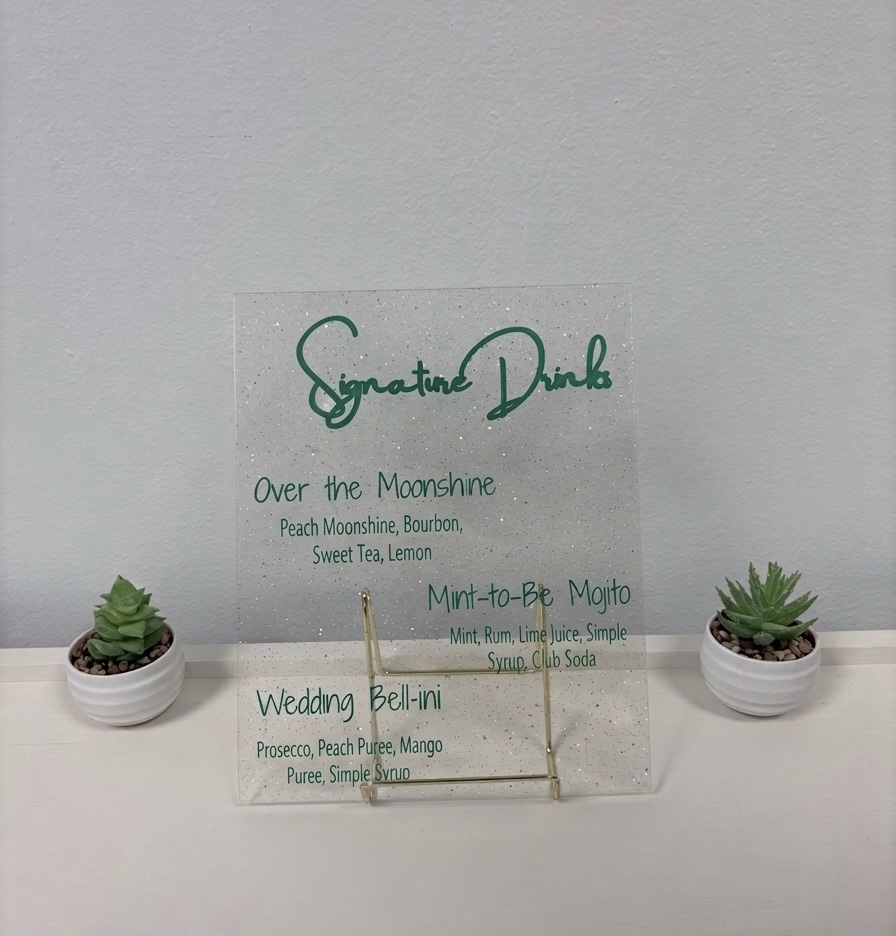 Signature Drinks
Over the Moonshine
Peach Moonshine, Bourbon,
Sweet Tea, Lemon
Mint-to-Be Mojito
Mint, Rum, Lime Juice, Simple
Syrup, Club Soda
Wedding Bell-ini
Prosecco, Peach Puree, Mango
Puree, Simple Syrup